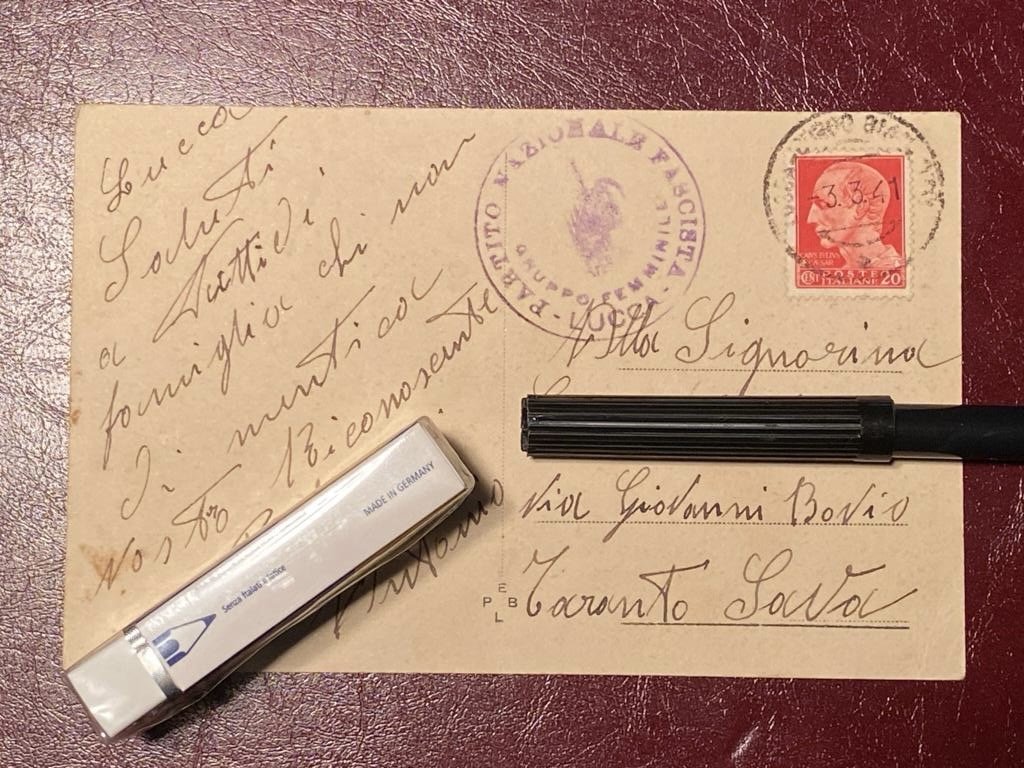 Lucca
Saluti
a Tutti di
famiglia chi non
di mentica
Vosto Riconoscente
Antonio
PARTITO NAZIONALE FASCISTA
GRUPPO FEMMINILE
- LUCCA -
-3.3.41
CAIVS IVLIVS
CAESAR
CENT POSTE 20
ITALIANE
Alla Signorina
Via Giovanni Bovio
Taranto Sava
E
P B
L
MADE IN GERMANY
Senza ftalati e lattice